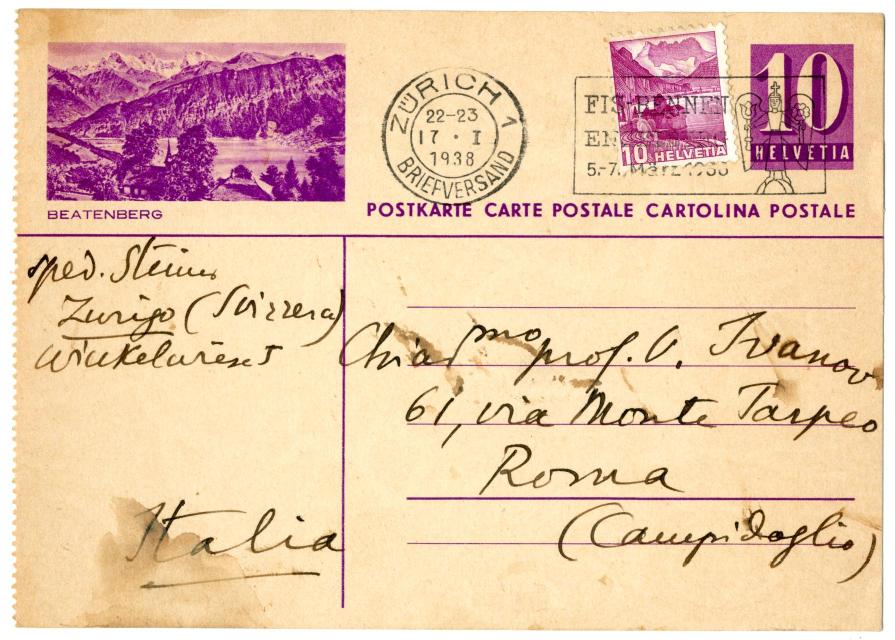 BEATENBERG
ZÜRICH 1
22-23
17 · I
1938
BRIEFVERSAND
FIS-RENNEN
EN
5.-7. März 1938
10 HELVETIA
10
HELVETIA
POSTKARTE CARTE POSTALE CARTOLINA POSTALE
sped. Steiner
Zurigo (Svizzera)
Chiar mo prof. V. Ivanov
61, via Monte Tarpeo
Roma
(Campidoglio)
Italia